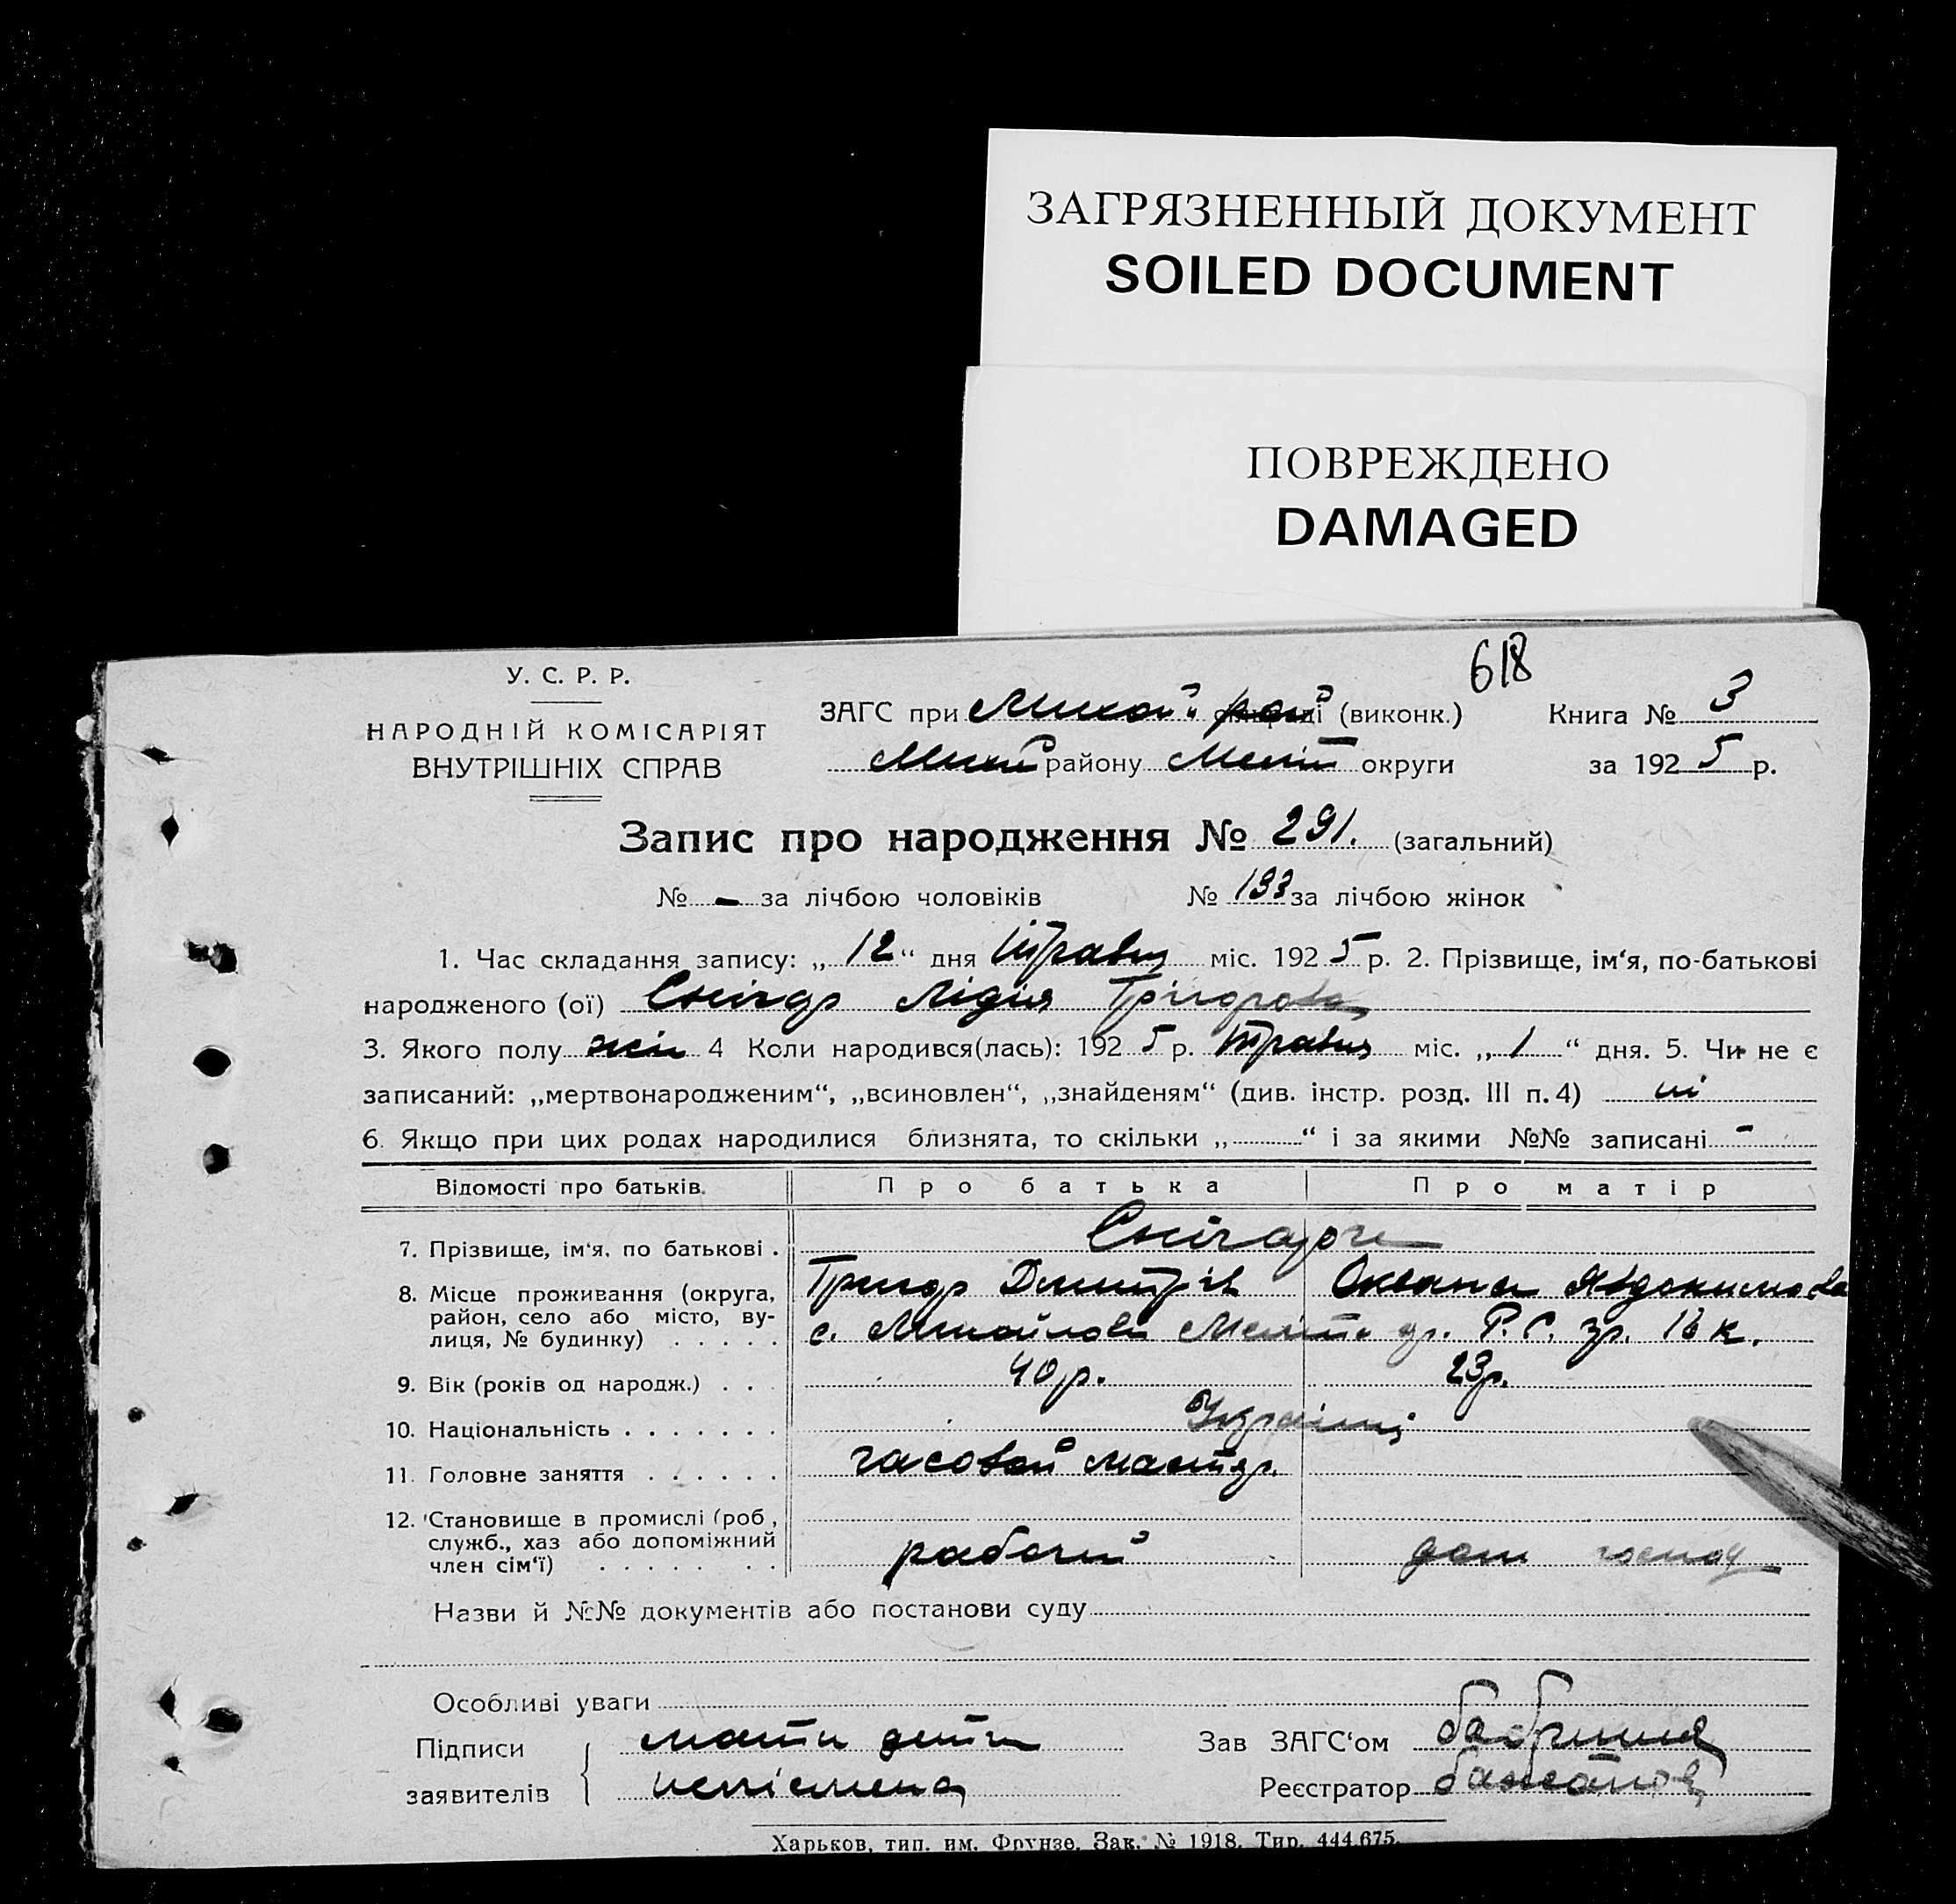 ЗАГРЯЗНЕННЫЙ ДОКУМЕНТ
SOILED DOCUMENT
ПОВРЕЖДЕНО
DAMAGED
618
У. С. Р. Р.
НАРОДНІЙ КОМІСАРІЯТ
ВНУТРІШНІХ СПРАВ
ЗАГС при Михай. рай (виконк.) Книга № 3
Мих району Меліт округи за 1925 р.
Запис про народження № 291. (загальний)
№ - за лічбою чоловіків № 133 за лічбою жінок
1. Час складання запису: „12“ дня Травня міс. 1925 р. 2. Прізвище, ім‘я, по-батькові
народженого (ої) Снігур Лідія Грігорова
3. Якого полу жін 4 Коли народився(лась): 1925 р. Травня міс. „1“ дня. 5. Чи не є
записаний: „мертвонародженим“, „всиновлен“, „знайденям“ (див. інстр. розд. III п. 4) ні
6. Якщо при цих родах народилися близнята, то скільки „ “ і за якими №№ записані -
Відомості про батьків. Про батька Про матір
7. Прізвище, ім‘я, по батькові .
8. Місце проживання (округа, Григор Дмитрів Оксана Явдокимова
район, село або місто, ву-
лиця, № будинку) . . . . . с. Михайловк Меліт. Р. С. 16 к.
9. Вік (років од народж.) . . . 40 р. 23 р.
10. Національність . . . . . . . Українці
11. Головне заняття . . . . . . часовой мастер.
12. Становище в промислі (роб.,
служб., хаз або допоміжний
член сім‘ї) . . . . . . . рабочий дом госпо
Назви й №№ документів або постанови суду
Особливі уваги
Підписи мати дитин Зав ЗАГС‘ом
заявителів неписмена Реєстратор
Харьков, тип. им. Фрунзе. Зак. № 1918. Тир. 444.675.